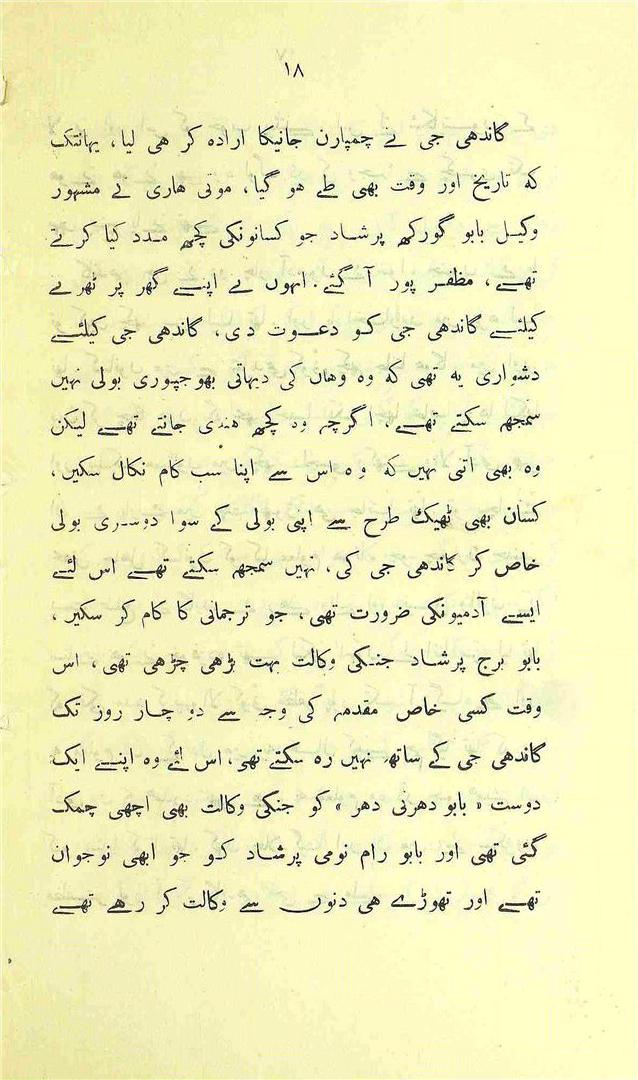 ۱۸
گاندھی جی نے چمپارن جانیکا ارادہ کر ھی لیا، یہانتک
کہ تاریخ اور وقت بھی طے ھو گیا، موتی ھاری نے مشہور
وکیل بابو گورکھ پرشاد جو کسانونکی کچھ مدد کیا کرتے
تھے، مظفر پور آ گئے. انہوں نے اپنے گھر پر ٹھرنے
کیلئے گاندھی جی کو دعوت دی، گاندھی جی کیلئے
دشواری یہ تھی کہ وہ وھاں کی دیہاتی بھوجپوری بولی نہیں
سمجھ سکتے تھے، اگرچہ وہ کچھ ھندی جانتے تھے لیکن
وہ بھی اتنی نہیں کہ وہ اس سے اپنا سب کام نکال سکیں،
کسان بھی ٹھیک طرح سے اپنی بولی کے سوا دوسری بولی
خاص کر گاندھی جی کی، نہیں سمجھ سکتے تھے اس لئے
ایسے آدمیونکی ضرورت تھی، جو ترجمانی کا کام کر سکیں،
بابو برج پرشاد جنکی وکالت بہت بڑھی چڑھی تھی، اس
وقت کسی خاص مقدمہ کی وجہ سے دو چار روز تک
گاندھی جی کے ساتھ نہیں رہ سکتے تھی، اس لئے وہ اپنے ایک
دوست «بابو دھرنی دھر» کو جنکی وکالت بھی اچھی چمک
گئی تھی اور بابو رام نومی پرشاد کو جو ابھی نوجوان
تھے اور تھوڑے ھی دنوں سے وکالت کر رھے تھے